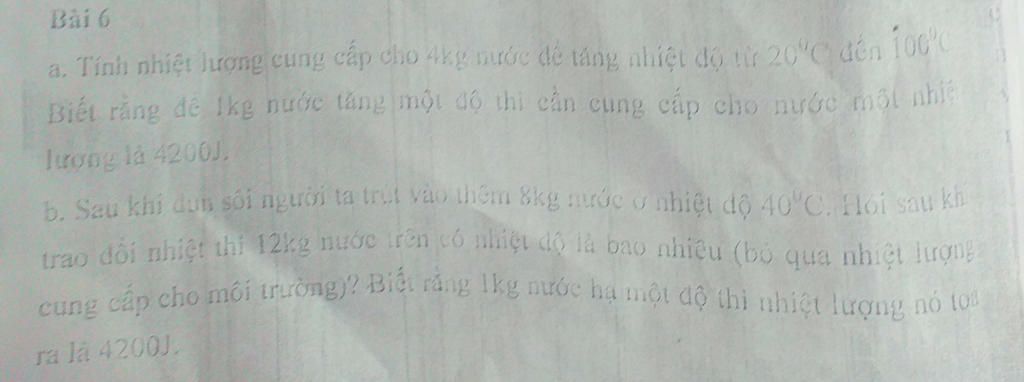 Bài 6
a. Tính nhiệt lượng cung cấp cho 4kg nước để tăng nhiệt độ từ 20⁰C đến 100⁰C
Biết rằng để 1kg nước tăng một độ thì cần cung cấp cho nước một nhiệ
lượng là 4200J.
b. Sau khi đun sôi người ta trút vào thêm 8kg nước ở nhiệt độ 40⁰C. Hỏi sau kh
trao đổi nhiệt thì 12kg nước trên có nhiệt độ là bao nhiêu (bỏ qua nhiệt lượng
cung cấp cho môi trường)? Biết rằng 1kg nước hạ một độ thì nhiệt lượng nó toả
ra là 4200J.